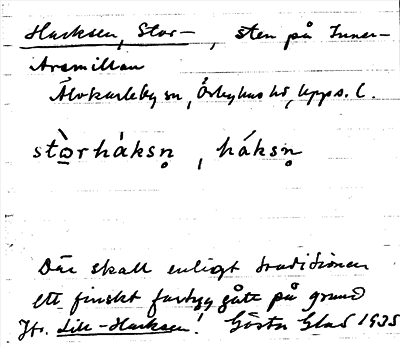 Harksen, Stor- , sten på Inner-
Arsmillan
Älvkarleby sn, Örbyhus hd, Upps. l.
stò̱rháksn̥ , háksn̥
Där skall enligt traditionen
ett finskt fartyg gått på grund
Jfr. Lill-Harksen! Gösta Glad 1935